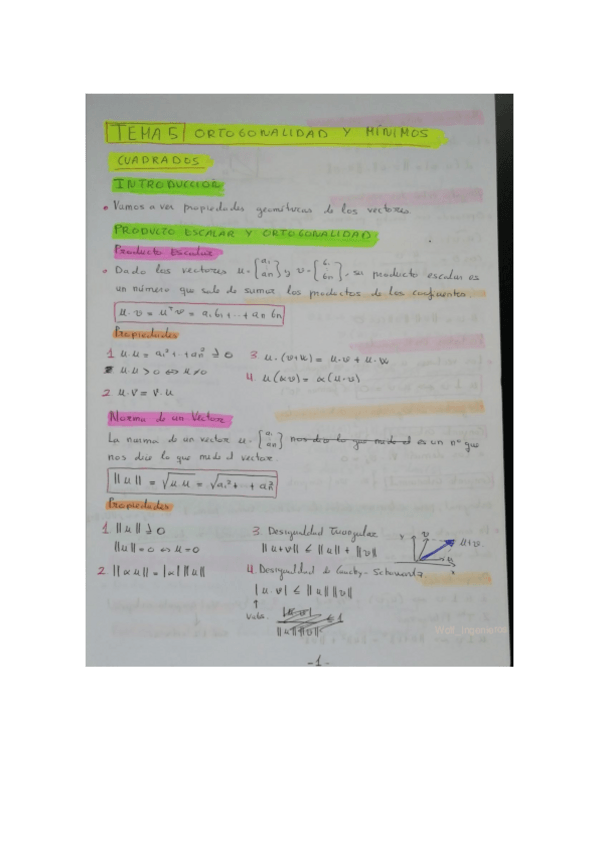 TEMA 5 ORTOGONALIDAD Y MÍNIMOS
CUADRADOS
INTRODUCCION
• Vamos a ver propiedades geométricas de los vectores
PRODUCTO ESCALAR Y ORTOGONALIDAD
Producto Escalar
• Dado los vectores u = [a₁ an] y v = [b₁ bn], su producto escalar es
un número que sale de sumar los productos de los coeficientes.
u·v = uᵀ·v = a₁b₁ + ·· + an bn
Propiedades
1 u.u = a₁² + ·· + an² ≥ 0
u.u > 0 ⇔ u ≠ 0
2 u.v = v.u
3 u.(v+w) = u.v + u.w
4 u(αv) = α(u·v)
Norma de un Vector
La norma de un vector u = [a₁ an] nos dice lo que mide el es un nº que
nos dice lo que mide el vector.
||u|| = √u.u = √a₁² + ·· + an²
Propiedades
1 ||u|| ≥ 0
||u|| = 0 ⇔ u = 0
2 ||αu|| = |α| ||u||
3 Desigualdad Triangular
||u+v|| ≤ ||u|| + ||v||
Y v u+v
u x
4 Desigualdad de Cauchy-Schwarz
|u.v| ≤ ||u|| ||v||
↑
Valor
|u.v| ≤ 1
||u|| ||v||
-1-